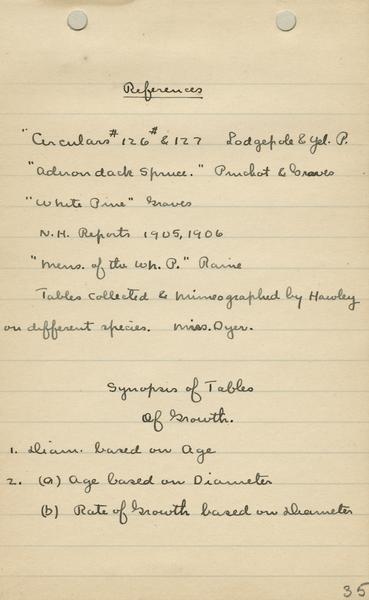 References
"Circulars #126 #& 127 Lodgepole & Yel. P.
"Adirondack Spruce." Pinchot & Graves
"White Pine" Graves
N.H. Reports 1905, 1906
"Mens. of the Wh. P." Raine
Tables collected & mimeographed by Hawley
on different species. Miss. Dyer.
Synopsis of Tables
Of Growth.
1. Diam. based on Age
2. (a) Age based on Diameter
(b) Rate of Growth based on Diameter
35